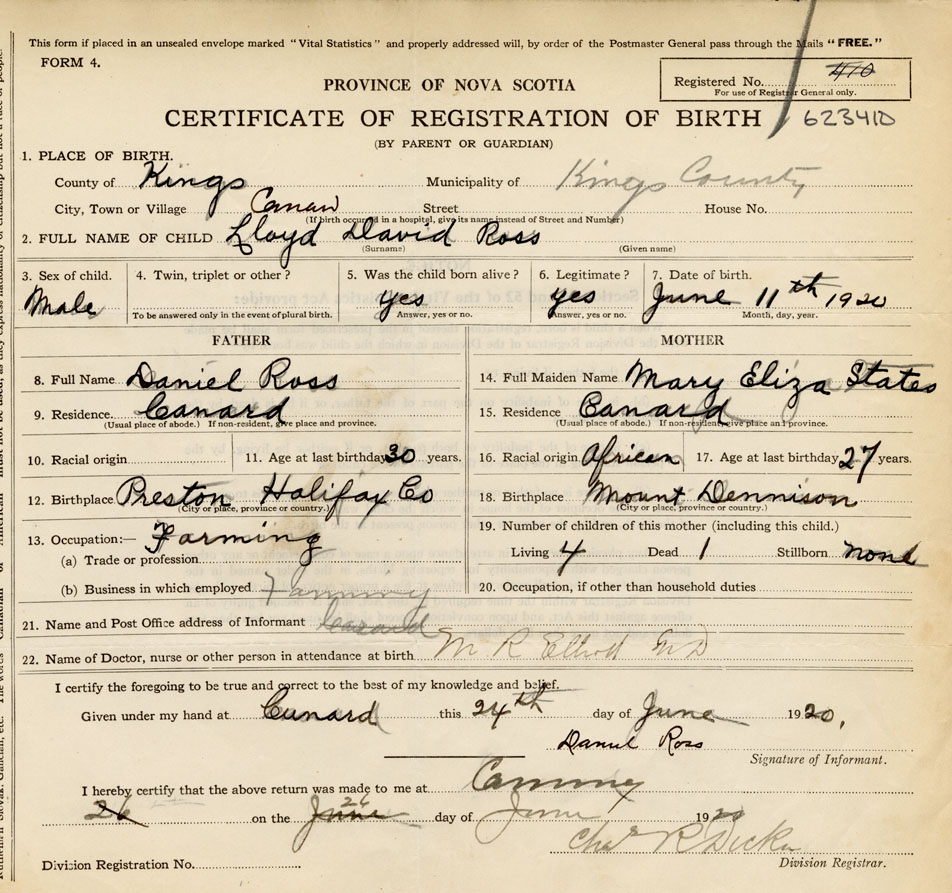 This form if placed in an unsealed envelope marked "Vital Statistics" and properly addressed will, by order of the Postmaster General pass through the Mails "FREE."
FORM 4.
Registered No. 410
For use of Registrar General only.
PROVINCE OF NOVA SCOTIA
CERTIFICATE OF REGISTRATION OF BIRTH 623410
(BY PARENT OR GUARDIAN)
1. PLACE OF BIRTH.
County of Kings Municipality of Kings County
City, Town or Village Street House No.
(If birth occurred in a hospital, give its name instead of Street and Number)
2. FULL NAME OF CHILD Lloyd David Ross
(Surname) (Given name)
3. Sex of child. 4. Twin, triplet or other? 5. Was the child born alive? 6. Legitimate? 7. Date of birth.
Male yes yes June 11th 1920
To be answered only in the event of plural birth. Answer, yes or no. Answer, yes or no. Month, day, year.
FATHER MOTHER
8. Full Name Daniel Ross 14. Full Maiden Name Mary Eliza States
9. Residence Canard 15. Residence Canard
(Usual place of abode.) If non-resident, give place and province. (Usual place of abode.) If non-resident, give place and province.
10. Racial origin 11. Age at last birthday 30 years. 16. Racial origin African 17. Age at last birthday 27 years.
12. Birthplace Preston Halifax Co 18. Birthplace Mount Dennison
(City or place, province or country.) (City or place, province or country.)
13. Occupation:— Farming 19. Number of children of this mother (including this child.)
(a) Trade or profession Living 4 Dead 1 Stillborn none
(b) Business in which employed Farming 20. Occupation, if other than household duties
21. Name and Post Office address of Informant Canard
22. Name of Doctor, nurse or other person in attendance at birth M R Elliott MD
I certify the foregoing to be true and correct to the best of my knowledge and belief.
Given under my hand at Canard this 24th day of June 1920.
Daniel Ross
Signature of Informant.
I hereby certify that the above return was made to me at Canning
26 on the June 26 day of June 1920
Chas R Dickie
Division Registration No. Division Registrar.